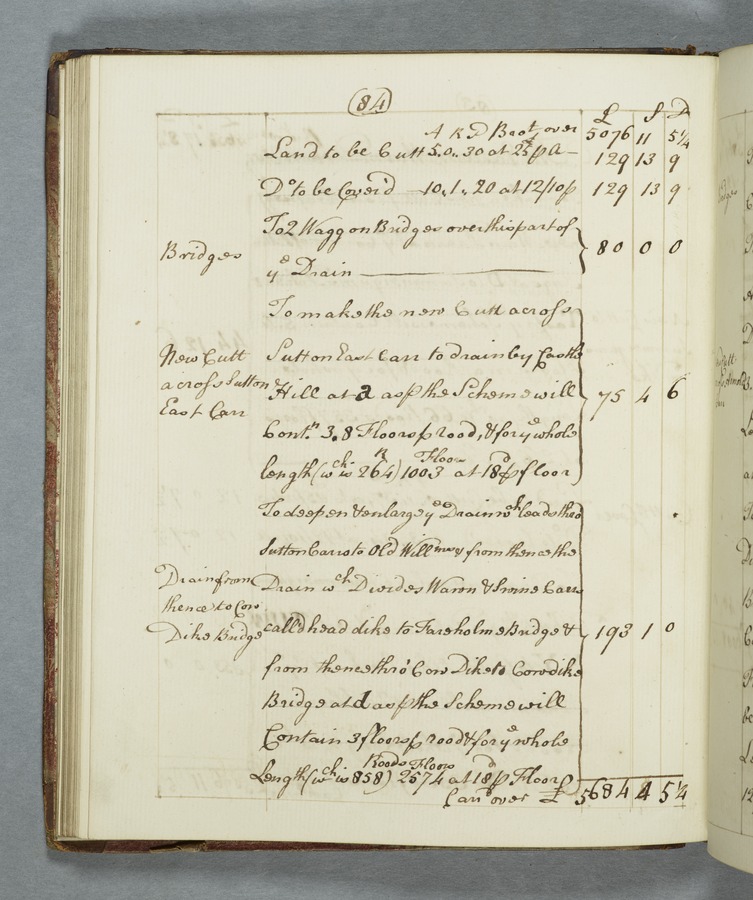 84
£ S D
A R P Brot. over 5076 11 5¼
Land to be Cutt 5.0.30 at 25 p A — 129 13 9
Do to be Cover'd 10.1.20 at 12/10 p 129 13 9
To 2 Waggon Bridges over this part of
Bridges 80 0 0
ye Drain
To make the new Cutt across
New Cutt Sutton East Carr to drain by Castle
across Sutton Hill at a as p the Scheme will 75 4 6
East Carr
Contn. 3.8 Floors p rood, & for ye whole
length (wch is 264 R) 1003 Floors at 18d p floor
To deepen & enlarge ye Drain wch leads thro
Sutton Carr to Old Will from thence the
Drain from Drain wch Divides Waron & Swine Carr
thence to Cow
Dike Bridge calld head dike to Fareholme Bridge & 193 1 0
from thence thro' Cow Dike to Cowdike
Bridge at d as p the Scheme will
Contain 3 floors p rood & for ye whole
Length (wch is 858 Roods) 2574 Floors at 18d p Floor
Carrd over £ 5684 4 5¼